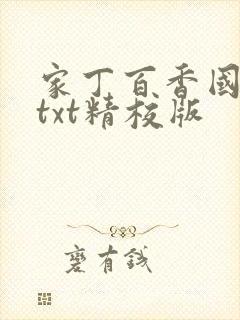 家丁百香國
txt精校版
蹇有錢